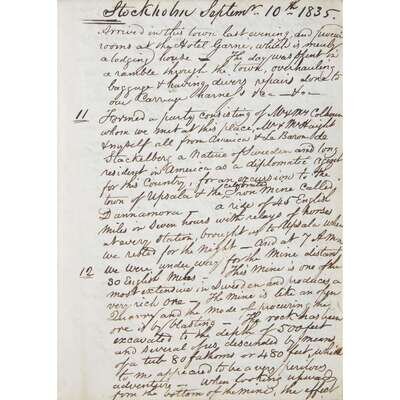 Stockholm Septemr. 10th 1835.
Arrived in this town last evening and
rooms at the Hotel Garne, which is merely
a lodging house — The day was spent in
a ramble through the town, overhauling
luggage & having divers repairs done to
our Carriage Harness &c — &c —
11 Formed a party consisting of Mr & Mrs Colhoun
whom we met at this place, Mr & Mrs Haight
& myself all from America & Le Baron de
Stackelberg a Native of Sweden and long
resident in America as a diplomatic
for this Country, for an excursion to the
town of Upsala & the celebrated Iron Mine called
Dannamora — a ride of 45 English
Miles in Seven hours with relays of horses
at every Station, brought us to Upsala where
we rested for the Night — And at 7 A.M.
12 we were under way for the Mine distant
30 English Miles — This Mine is one of the
most extensive in Sweden and produces a
very rich one — The Mine is like an open
Quarry and the Mode of procuring the
ore is by blasting — The rock has been
excavated to the depth of 500 feet
and several of us descended by means
of a tub 80 fathoms or 480 feet, which
to me appeared to be a very perilous
adventure — When looking upward
from the bottom of the Mine, the effect